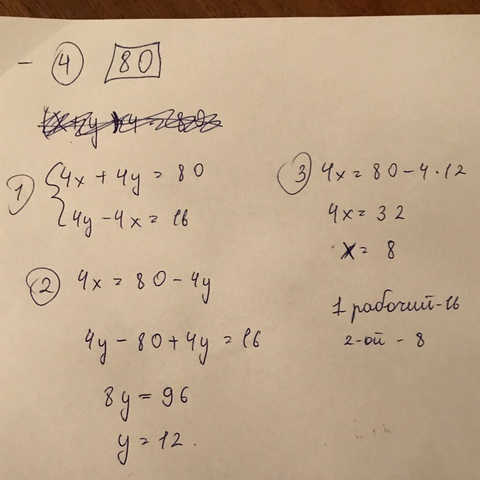 – 4 80
1 4x + 4y = 80
4y – 4x = 16
2 4x = 80 – 4y
4y – 80 + 4y = 16
8y = 96
y = 12.
3 4x = 80 – 4 · 12
4x = 32
x = 8
1 рабочий – 16
2-ой – 8